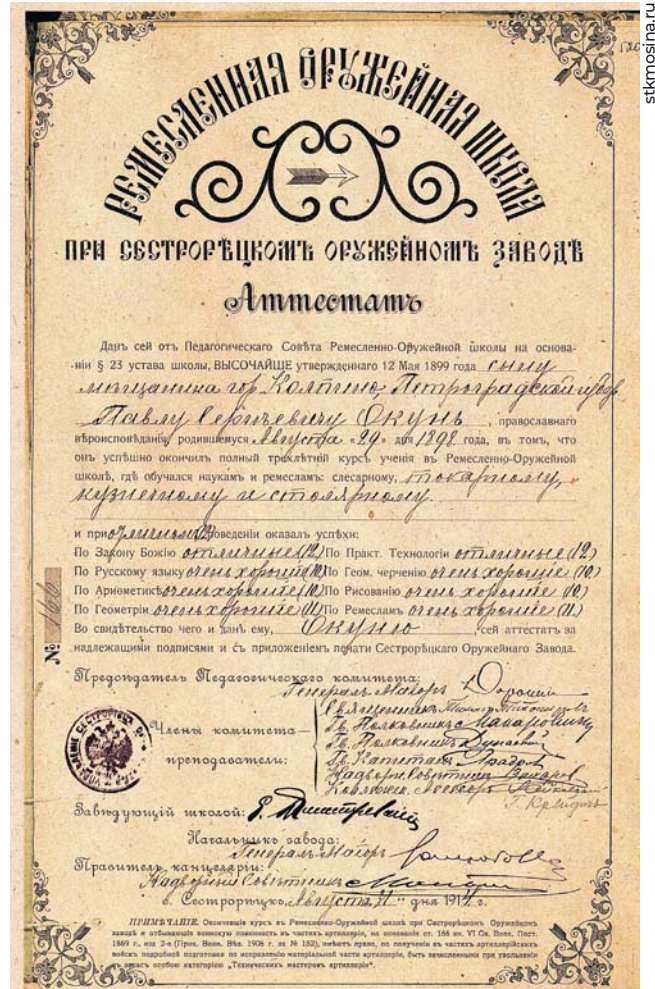 stkmosina.ru
РЕМЕСЛЕННАЯ ОРУЖЕЙНАЯ ШКОЛА
ПРИ СЕСТРОРѢЦКОМЪ ОРУЖЕЙНОМЪ ЗАВОДѢ
Аттестатъ
Данъ сей отъ Педагогическаго Совѣта Ремесленно-Оружейной школы на основа-
ніи § 23 устава школы, ВЫСОЧАЙШЕ утвержденнаго 12 Мая 1899 года сыну
мѣщанина гор. Колпино, Петроградской губ.
Павлу Сергѣевичу Окунь, православнаго
вѣроисповѣданія, родившемуся Августа „29" дня 1898 года, въ томъ, что
онъ успѣшно окончилъ полный трехлѣтній курсъ ученія въ Ремесленно-Оружейной
школѣ, гдѣ обучался наукамъ и ремесламъ: слесарному, токарному,
кузнечному и столярному
и при отличномъ поведеніи оказалъ успѣхи:
По Закону Божію отличные (12) По Практ. Технологіи отличные (12)
По Русскому языку очень хорошіе (10) По Геом. черченію очень хорошіе (10)
По Ариѳметикѣ очень хорошіе (10) По Рисованію очень хорошіе (10)
По Геометріи очень хорошіе (11) По Ремесламъ очень хорошіе (11)
Во свидѣтельство чего и данъ ему, Окуню, сей аттестатъ за
надлежащими подписями и съ приложеніемъ печати Сестрорѣцкаго Оружейнаго Завода.
№ 166
Предсѣдатель Педагогическаго комитета:
Генералъ-Маіоръ
Священникъ
Члены комитета—
Полковникъ
Полковникъ
преподаватели:
Капитанъ
Надворн. Совѣтникъ
Завѣдующій школой:
Начальникъ завода:
Генералъ-Маіоръ
Правитель канцеляріи:
Надворный Совѣтникъ
г. Сестрорѣцкъ, Августа 11 дня 191 г.
ПРИМѢЧАНІЕ. Окончившіе курсъ въ Ремесленно-Оружейной школѣ при Сестрорѣцкомъ Оружейномъ
заводѣ и отбывающіе воинскую повинность въ частяхъ артиллеріи, на основаніи ст. 166 кн. VI Св. Воен. Пост.
1869 г., изд. 2-е (Прик. Воен. Вѣд. 1906 г. за № 152), имѣютъ право, по полученіи въ частяхъ артиллерійскихъ
войскъ подробной подготовки по исправленію матеріальной части артиллеріи, быть зачисленными при увольненіи
въ запасъ особою категоріею „Техническихъ мастеровъ артиллеріи".